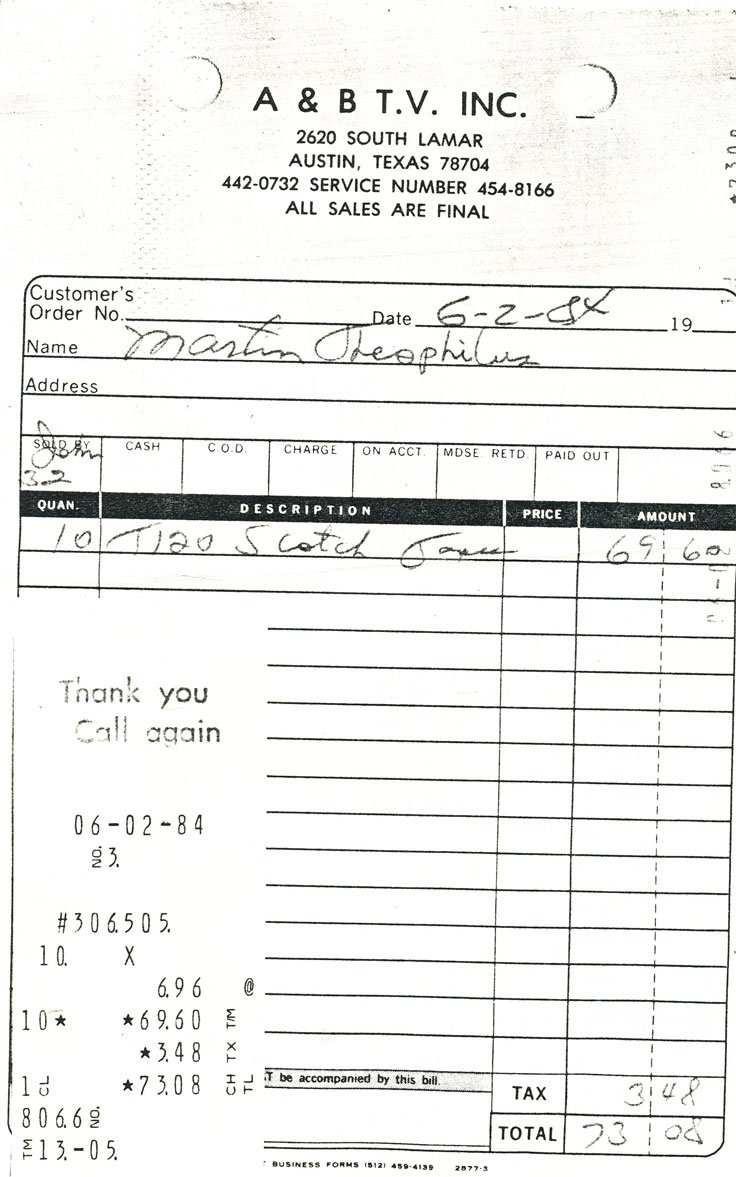 A & B T.V. INC.
2620 SOUTH LAMAR
AUSTIN, TEXAS 78704
442-0732 SERVICE NUMBER 454-8166
ALL SALES ARE FINAL
Customer's
Order No. Date 6-2-84 19
Name Martin Theophilus
Address
SOLD BY CASH C.O.D. CHARGE ON ACCT. MDSE. RETD. PAID OUT
John
32
QUAN. DESCRIPTION PRICE AMOUNT
10 T120 Scotch Tapes 69 60
Thank you
Call again
06-02-84
NO. 3.
#306.505.
10. X
6.96 @
10★ ★69.60 T/M
★3.48 TX
1 CL ★73.08 CH TL
T be accompanied by this bill.
TAX 3 48
806.6 NO.
TOTAL 73 08
TM 13.-05.
BUSINESS FORMS (512) 459-4139 2877-3